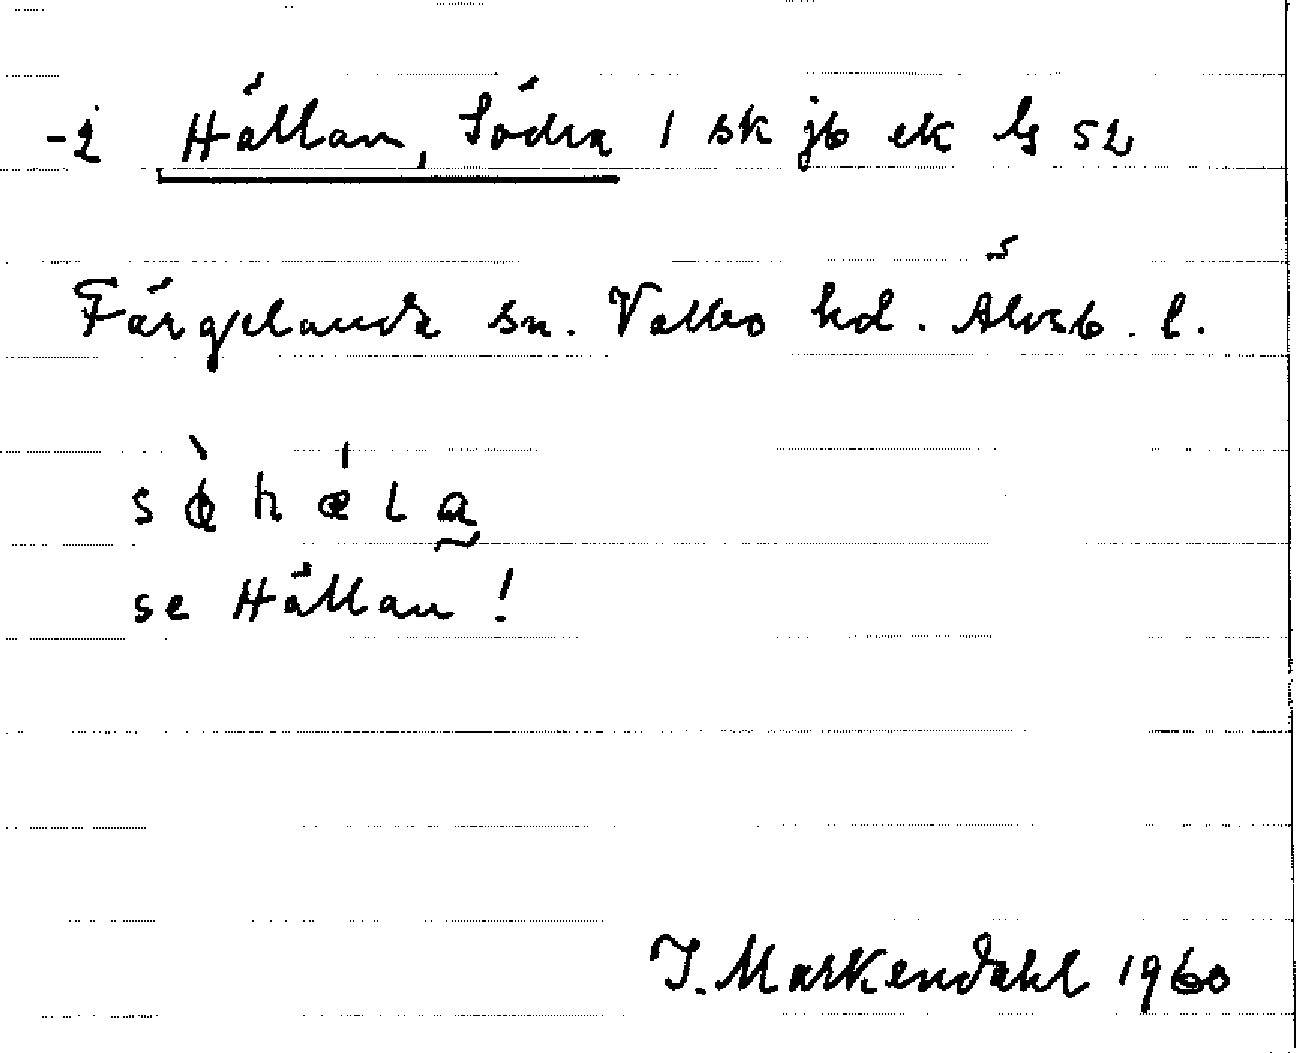 -2 Hällan, Södra 1 sk jb ek lg 52
Färgelanda sn. Valbo hd. Älvsb. l.
sø̀ hǽla
se Hällan!
I. Markendahl 1960